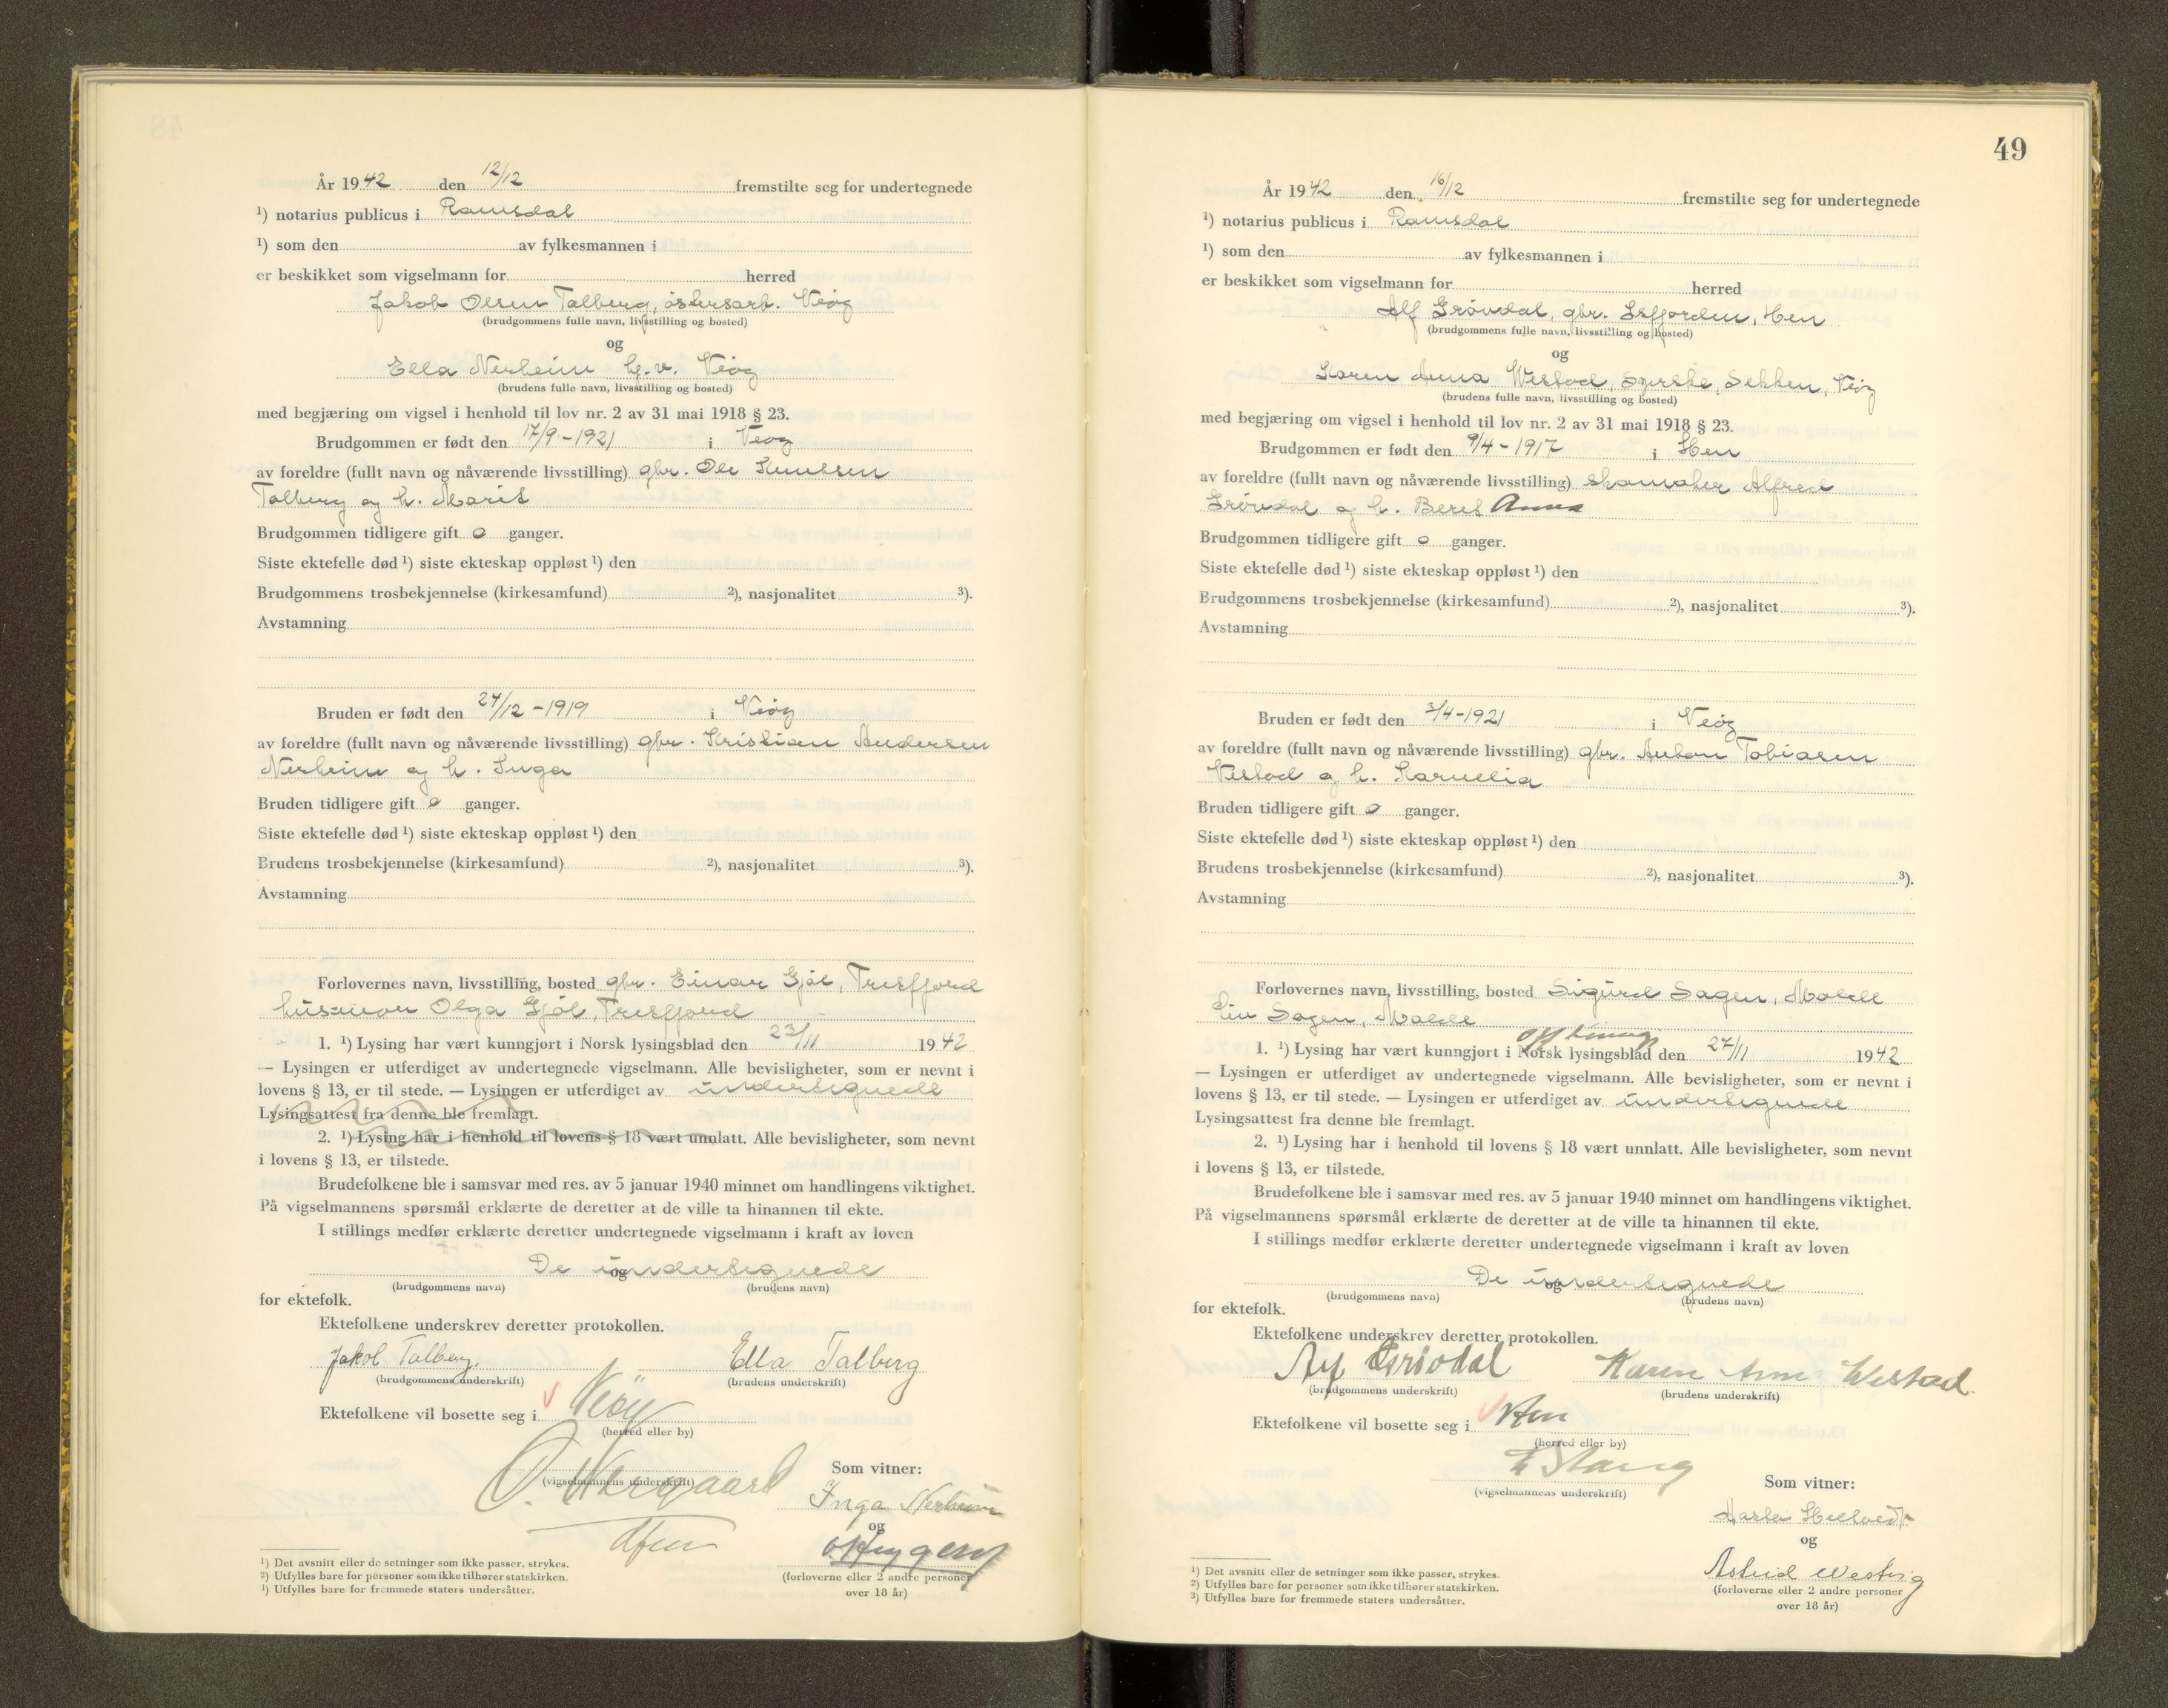 År 1942 den 12/12 fremstilte seg for undertegnede
¹) notarius publicus i Romsdal
¹) som den av fylkesmannen i
er beskikket som vigselmann for herred
Jakob Olsen Talberg, Veöy
(brudgommens fulle navn, livsstilling og bosted)
og
Ella Nerheim h.v. Veöy
(brudens fulle navn, livsstilling og bosted)
med begjæring om vigsel i henhold til lov nr. 2 av 31 mai 1918 § 23.
Brudgommen er født den 17/9-1921 i Veöy
av foreldre (fullt navn og nåværende livsstilling) gbr. Ole Knutsen
Talberg og h. Marit
Brudgommen tidligere gift 0 ganger.
Siste ektefelle død ¹) siste ekteskap oppløst ¹) den
Brudgommens trosbekjennelse (kirkesamfund) ²), nasjonalitet ³).
Avstamning
Bruden er født den 24/12-1919 i Veöy
av foreldre (fullt navn og nåværende livsstilling) gbr. Kristian Andersen
Nerheim og h. Inga
Bruden tidligere gift 0 ganger.
Siste ektefelle død ¹) siste ekteskap oppløst ¹) den
Brudens trosbekjennelse (kirkesamfund) ²), nasjonalitet ³).
Avstamning
Forlovernes navn, livsstilling, bosted gbr. Einar Gjöl, Tresfjord
husmor Olga Gjöl, Tresfjord
1. ¹) Lysing har vært kunngjort i Norsk lysingsblad den 23/11 1942
— Lysingen er utferdiget av undertegnede vigselmann. Alle bevisligheter, som er nevnt i
lovens § 13, er til stede. — Lysingen er utferdiget av undertegnede
Lysingsattest fra denne ble fremlagt.
2. ¹) Lysing har i henhold til lovens § 18 vært unnlatt. Alle bevisligheter, som nevnt
i lovens § 13, er tilstede.
Brudefolkene ble i samsvar med res. av 5 januar 1940 minnet om handlingens viktighet.
På vigselmannens spørsmål erklærte de deretter at de ville ta hinannen til ekte.
I stillings medfør erklærte deretter undertegnede vigselmann i kraft av loven
De undertegnede
og
(brudgommens navn) (brudens navn)
for ektefolk.
Ektefolkene underskrev deretter protokollen.
Jakob Talberg. Ella Talberg
(brudgommens underskrift) (brudens underskrift)
Ektefolkene vil bosette seg i Veöy
(herred eller by)
(vigselmannens underskrift)
Som vitner:
Inga Nerheim
og
(forloverne eller 2 andre personer
over 18 år)
¹) Det avsnitt eller de setninger som ikke passer, strykes.
²) Utfylles bare for personer som ikke tilhører statskirken.
³) Utfylles bare for fremmede staters undersåtter.
49
År 1942 den 16/12 fremstilte seg for undertegnede
¹) notarius publicus i Romsdal
¹) som den av fylkesmannen i
er beskikket som vigselmann for herred
Alf Grövdal, gbr. Isfjorden, Hen
(brudgommens fulle navn, livsstilling og bosted)
og
Karen Anna Westad, Sekken, Veöy
(brudens fulle navn, livsstilling og bosted)
med begjæring om vigsel i henhold til lov nr. 2 av 31 mai 1918 § 23.
Brudgommen er født den 9/4-1917 i Hen
av foreldre (fullt navn og nåværende livsstilling) skomaker Alfred
Grövdal og h. Beret Anna
Brudgommen tidligere gift 0 ganger.
Siste ektefelle død ¹) siste ekteskap oppløst ¹) den
Brudgommens trosbekjennelse (kirkesamfund) ²), nasjonalitet ³).
Avstamning
Bruden er født den 3/4-1921 i Veöy
av foreldre (fullt navn og nåværende livsstilling) gbr. Anton Tobiasen
Vestad og h. Karnelia
Bruden tidligere gift 0 ganger.
Siste ektefelle død ¹) siste ekteskap oppløst ¹) den
Brudens trosbekjennelse (kirkesamfund) ²), nasjonalitet ³).
Avstamning
Forlovernes navn, livsstilling, bosted Sigurd Sagen, Molde
Lin Sagen, Molde
1. ¹) Lysing har vært kunngjort i Norsk lysingsblad den 27/11 1942
— Lysingen er utferdiget av undertegnede vigselmann. Alle bevisligheter, som er nevnt i
lovens § 13, er til stede. — Lysingen er utferdiget av undertegnede
Lysingsattest fra denne ble fremlagt.
2. ¹) Lysing har i henhold til lovens § 18 vært unnlatt. Alle bevisligheter, som nevnt
i lovens § 13, er tilstede.
Brudefolkene ble i samsvar med res. av 5 januar 1940 minnet om handlingens viktighet.
På vigselmannens spørsmål erklærte de deretter at de ville ta hinannen til ekte.
I stillings medfør erklærte deretter undertegnede vigselmann i kraft av loven
De undertegnede
og
(brudgommens navn) (brudens navn)
for ektefolk.
Ektefolkene underskrev deretter protokollen.
Alf Grövdal Karen Anna Westad
(brudgommens underskrift) (brudens underskrift)
Ektefolkene vil bosette seg i Hen
(herred eller by)
E Stang
(vigselmannens underskrift)
Som vitner:
og
Astrid Westvig
(forloverne eller 2 andre personer
over 18 år)
¹) Det avsnitt eller de setninger som ikke passer, strykes.
²) Utfylles bare for personer som ikke tilhører statskirken.
³) Utfylles bare for fremmede staters undersåtter.